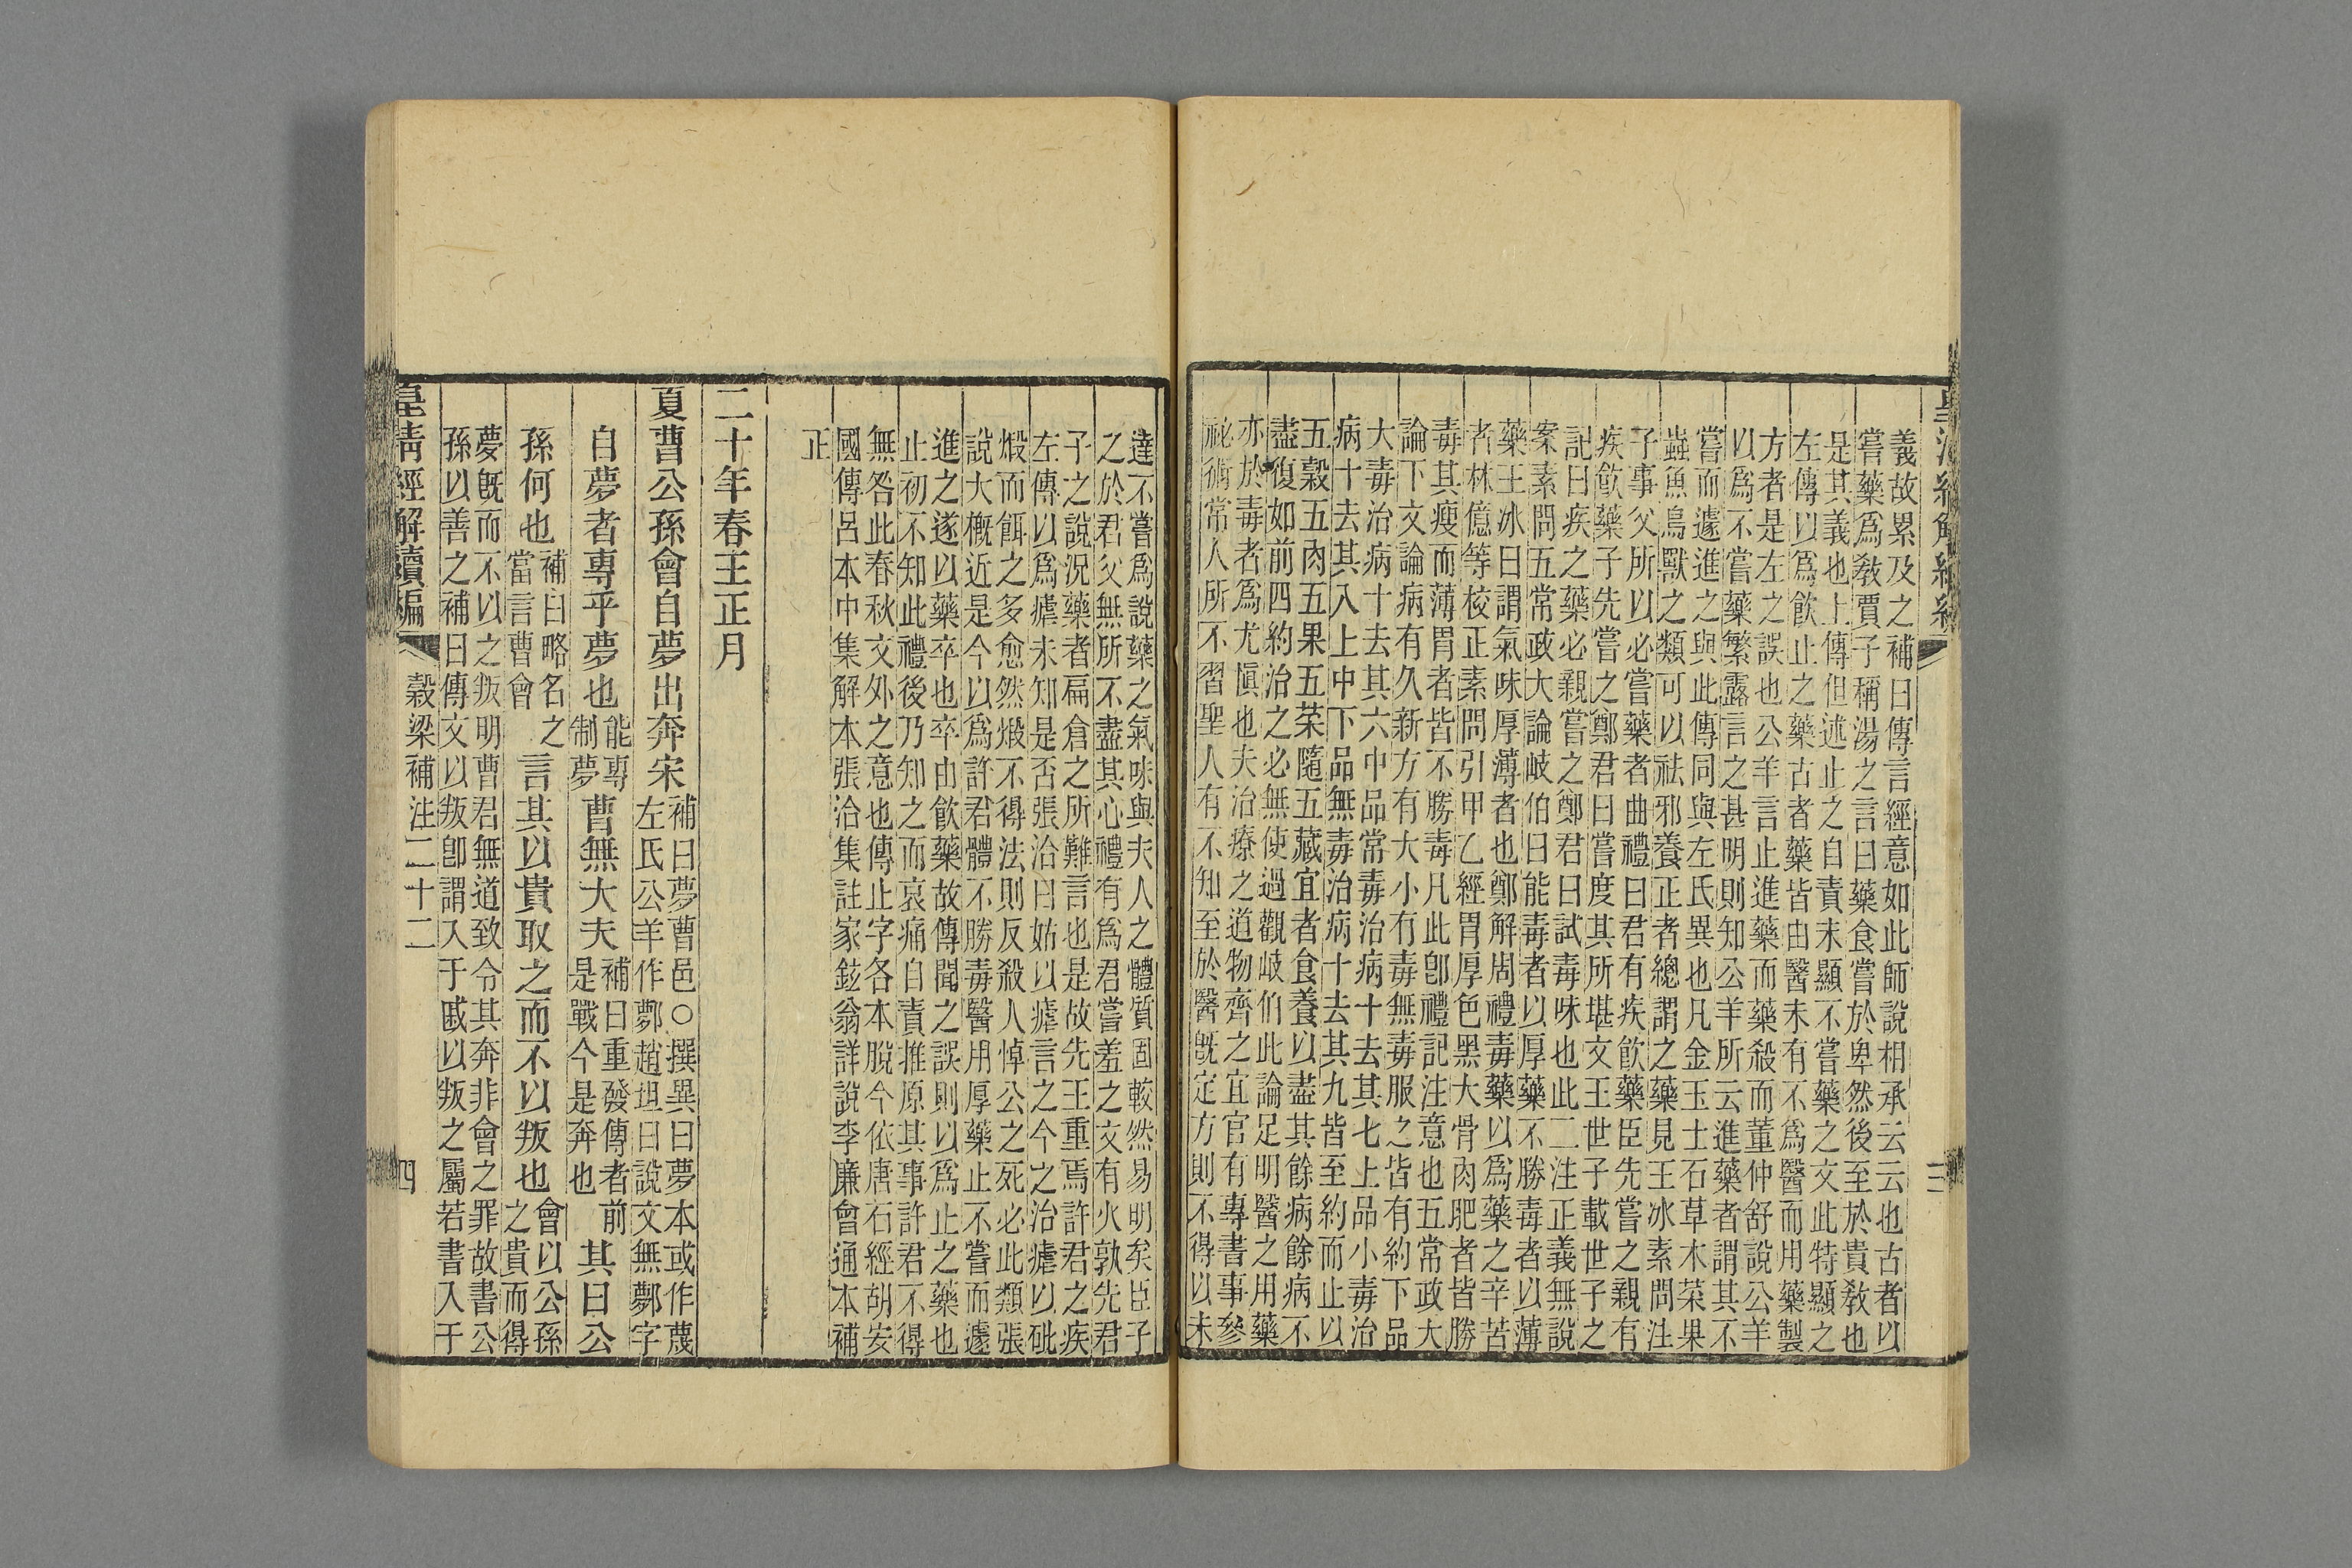 義故累及之補曰傳言經意如此師說相承云云也古者以
嘗藥爲教賈子稱湯之言曰藥食嘗於卑然後至於貴教也
是其義也上傳但述止之自責未顯不嘗藥之文此特顯之
左傳以爲飮止之藥古者藥皆由醫未有不爲醫而用藥製
方者是左之誤也公羊言止進藥而藥殺而董仲舒說公羊
以爲不嘗藥繁露言之甚明則知公羊所云進藥者謂其不
嘗而遽進之與此傳同與左氏異也凡金玉土石草木菜果
蟲魚鳥獸之類可以祛邪養正者總謂之藥見王冰素問注
子事父所以必嘗藥者曲禮曰君有疾飮藥臣先嘗之親有
疾飮藥子先嘗之鄭君曰嘗度其所堪文王世子載世子之
記曰疾之藥必親嘗之鄭君曰試毒味也此二注正義無說
案素問五常政大論岐伯曰能毒者以厚藥不勝毒者以薄
藥王冰曰謂氣味厚薄者也鄭解周禮毒藥以爲藥之辛苦
者林億等校正素問引甲乙經胃厚色黑大骨肉肥者皆勝
毒其瘦而薄胃者皆不勝毒凡此卽禮記注意也五常政大
論下文論病有久新方有大小有毒無毒服之皆有約下品
大毒治病十去其六中品常毒治病十去其七上品小毒治
病十去其八上中下品無毒治病十去其九皆至約而止以
五穀五肉五果五菜隨五藏宜者食養以盡其餘病餘病不
盡復如前四約治之必無使過觀岐伯此論足明醫之用藥
亦於毒者爲尤愼也夫治療之道物齊之宜官有專書事參
祕術常人所不習聖人有不知至於醫旣定方則不得以未
三
達不嘗爲說藥之氣味與夫人之體質固較然易明矣臣子
之於君父無所不盡其心禮有爲君嘗羞之文有火孰先君
子之說況藥者扁倉之所難言也是故先王重焉許君之疾
左傳以爲瘧未知是否張洽曰姑以瘧言之今之治瘧以砒
煅而餌之多愈然煅不得法則反殺人悼公之死必此類張
說大槪近是今以爲許君體不勝毒醫用厚藥止不嘗而遽
進之遂以藥卒也卒由飮藥故傳聞之誤則以爲止之藥也
止初不知此禮後乃知之而哀痛自責推原其事許君不得
無咎此春秋文外之意也傳止字各本脫今依唐石經胡安
國傳呂本中集解本張洽集註家鉉翁詳說李廉會通本補
正
二十年春王正月
夏曹公孫會自夢出奔宋補曰夢曹邑○撰異曰夢本或作蔑
左氏公羊作鄸趙坦曰說文無鄸字
自夢者專乎夢也能專制夢曹無大夫補曰重發傳者前是戰今是奔也其曰公
孫何也補曰略名之當言曹會言其以貴取之而不以叛也會以公孫之貴而得
夢旣而不以之叛明曹君無道致令其奔非會之罪故書公
孫以善之補曰傳文以叛卽謂入于戚以叛之屬若書入于
皇清經解續編
穀梁補注二十二
四